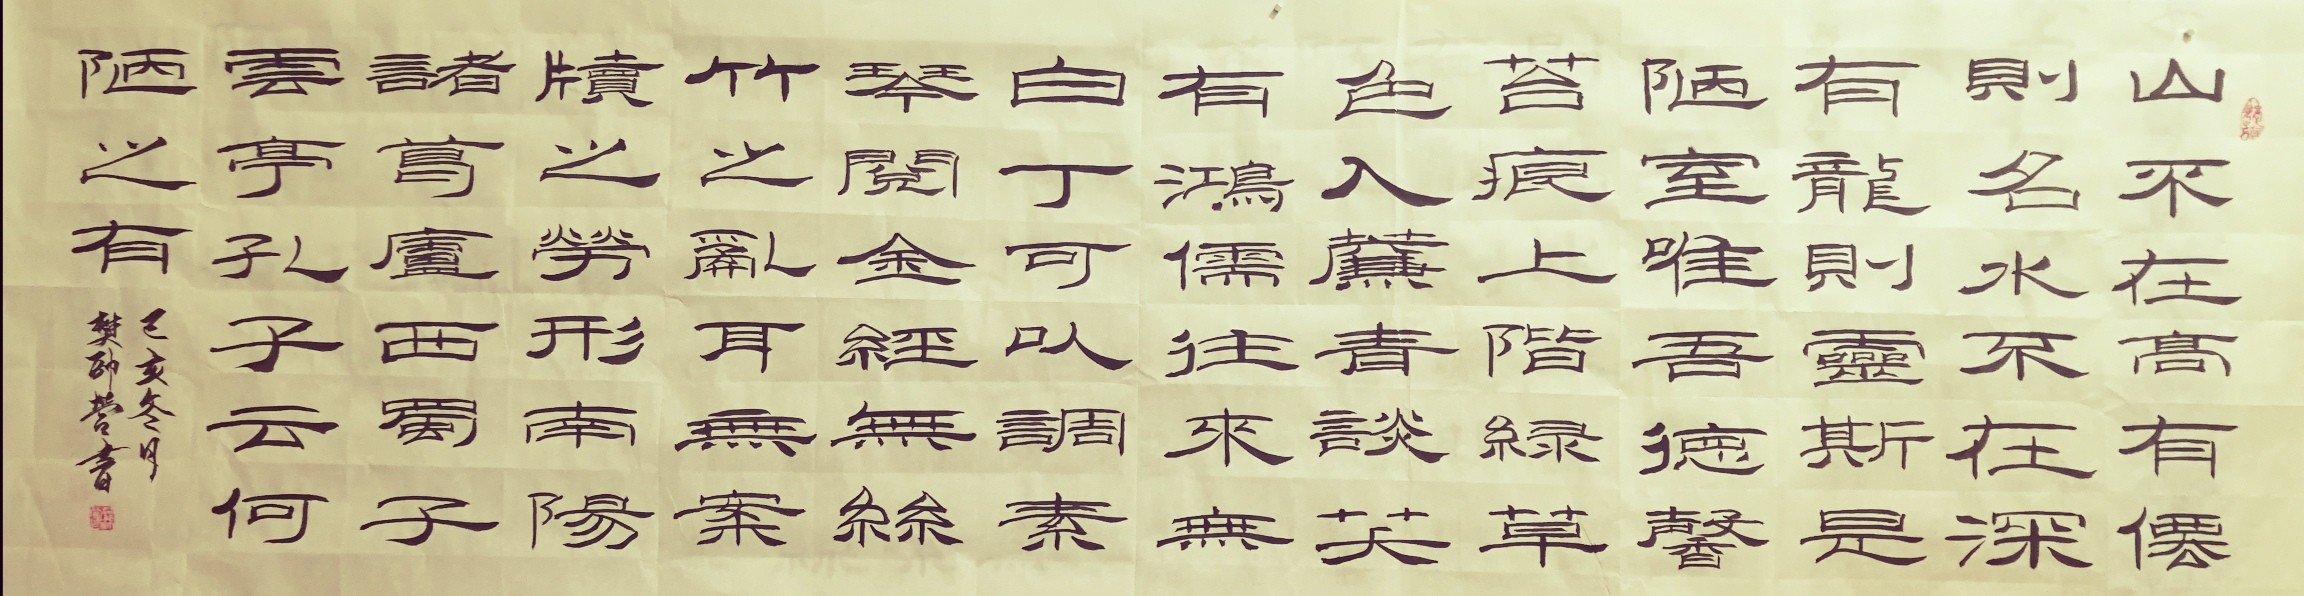 山不在高有僊
則名水不在深
有龍則靈斯是
陋室唯吾德馨
苔痕上階緑草
色入薕青談笑
有鴻儒往來無
白丁可以調素
琴閱金經無絲
竹之亂耳無案
牘之勞形南陽
諸葛廬西蜀子
雲亭孔子云何
陋之有
己亥冬月
樊營書